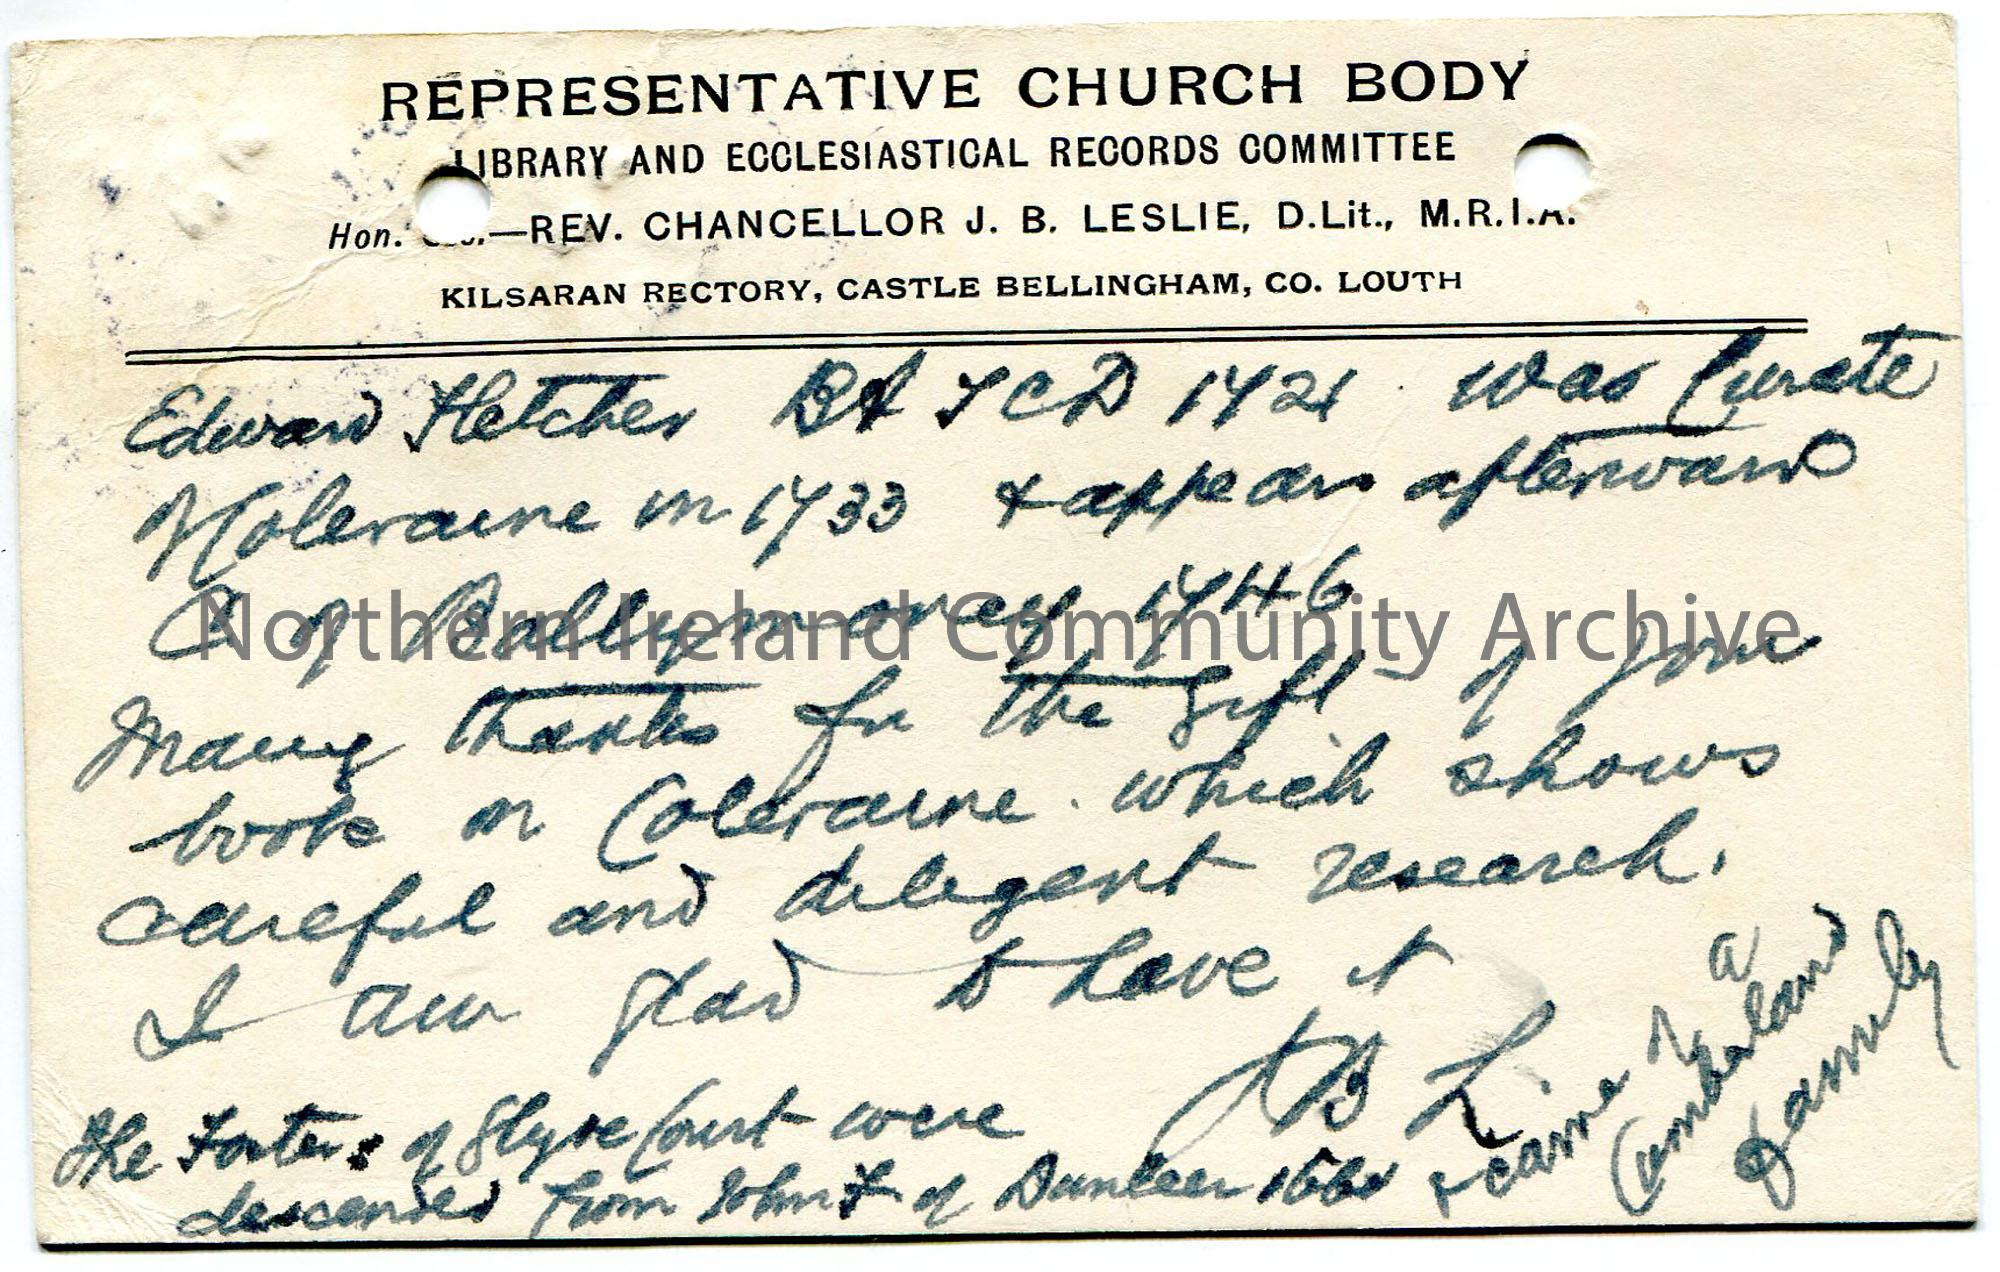 REPRESENTATIVE CHURCH BODY
LIBRARY AND ECCLESIASTICAL RECORDS COMMITTEE
Hon. —REV. CHANCELLOR J. B. LESLIE, D.Lit., M.R.I.A.
KILSARAN RECTORY, CASTLE BELLINGHAM, CO. LOUTH
Edward Fletcher BA TCD 1721 was Curate
of Coleraine in 1733 & appears afterward
C of Ballymoney 1746
Northern Ireland Community Archive
Many thanks for the gift of your
book on Coleraine which shows
careful and diligent research.
I am glad to have it
J B L.
The Fosters of Glyde Court were
descended from John F of Dunleer 1660 & came of a
Cumberland
family